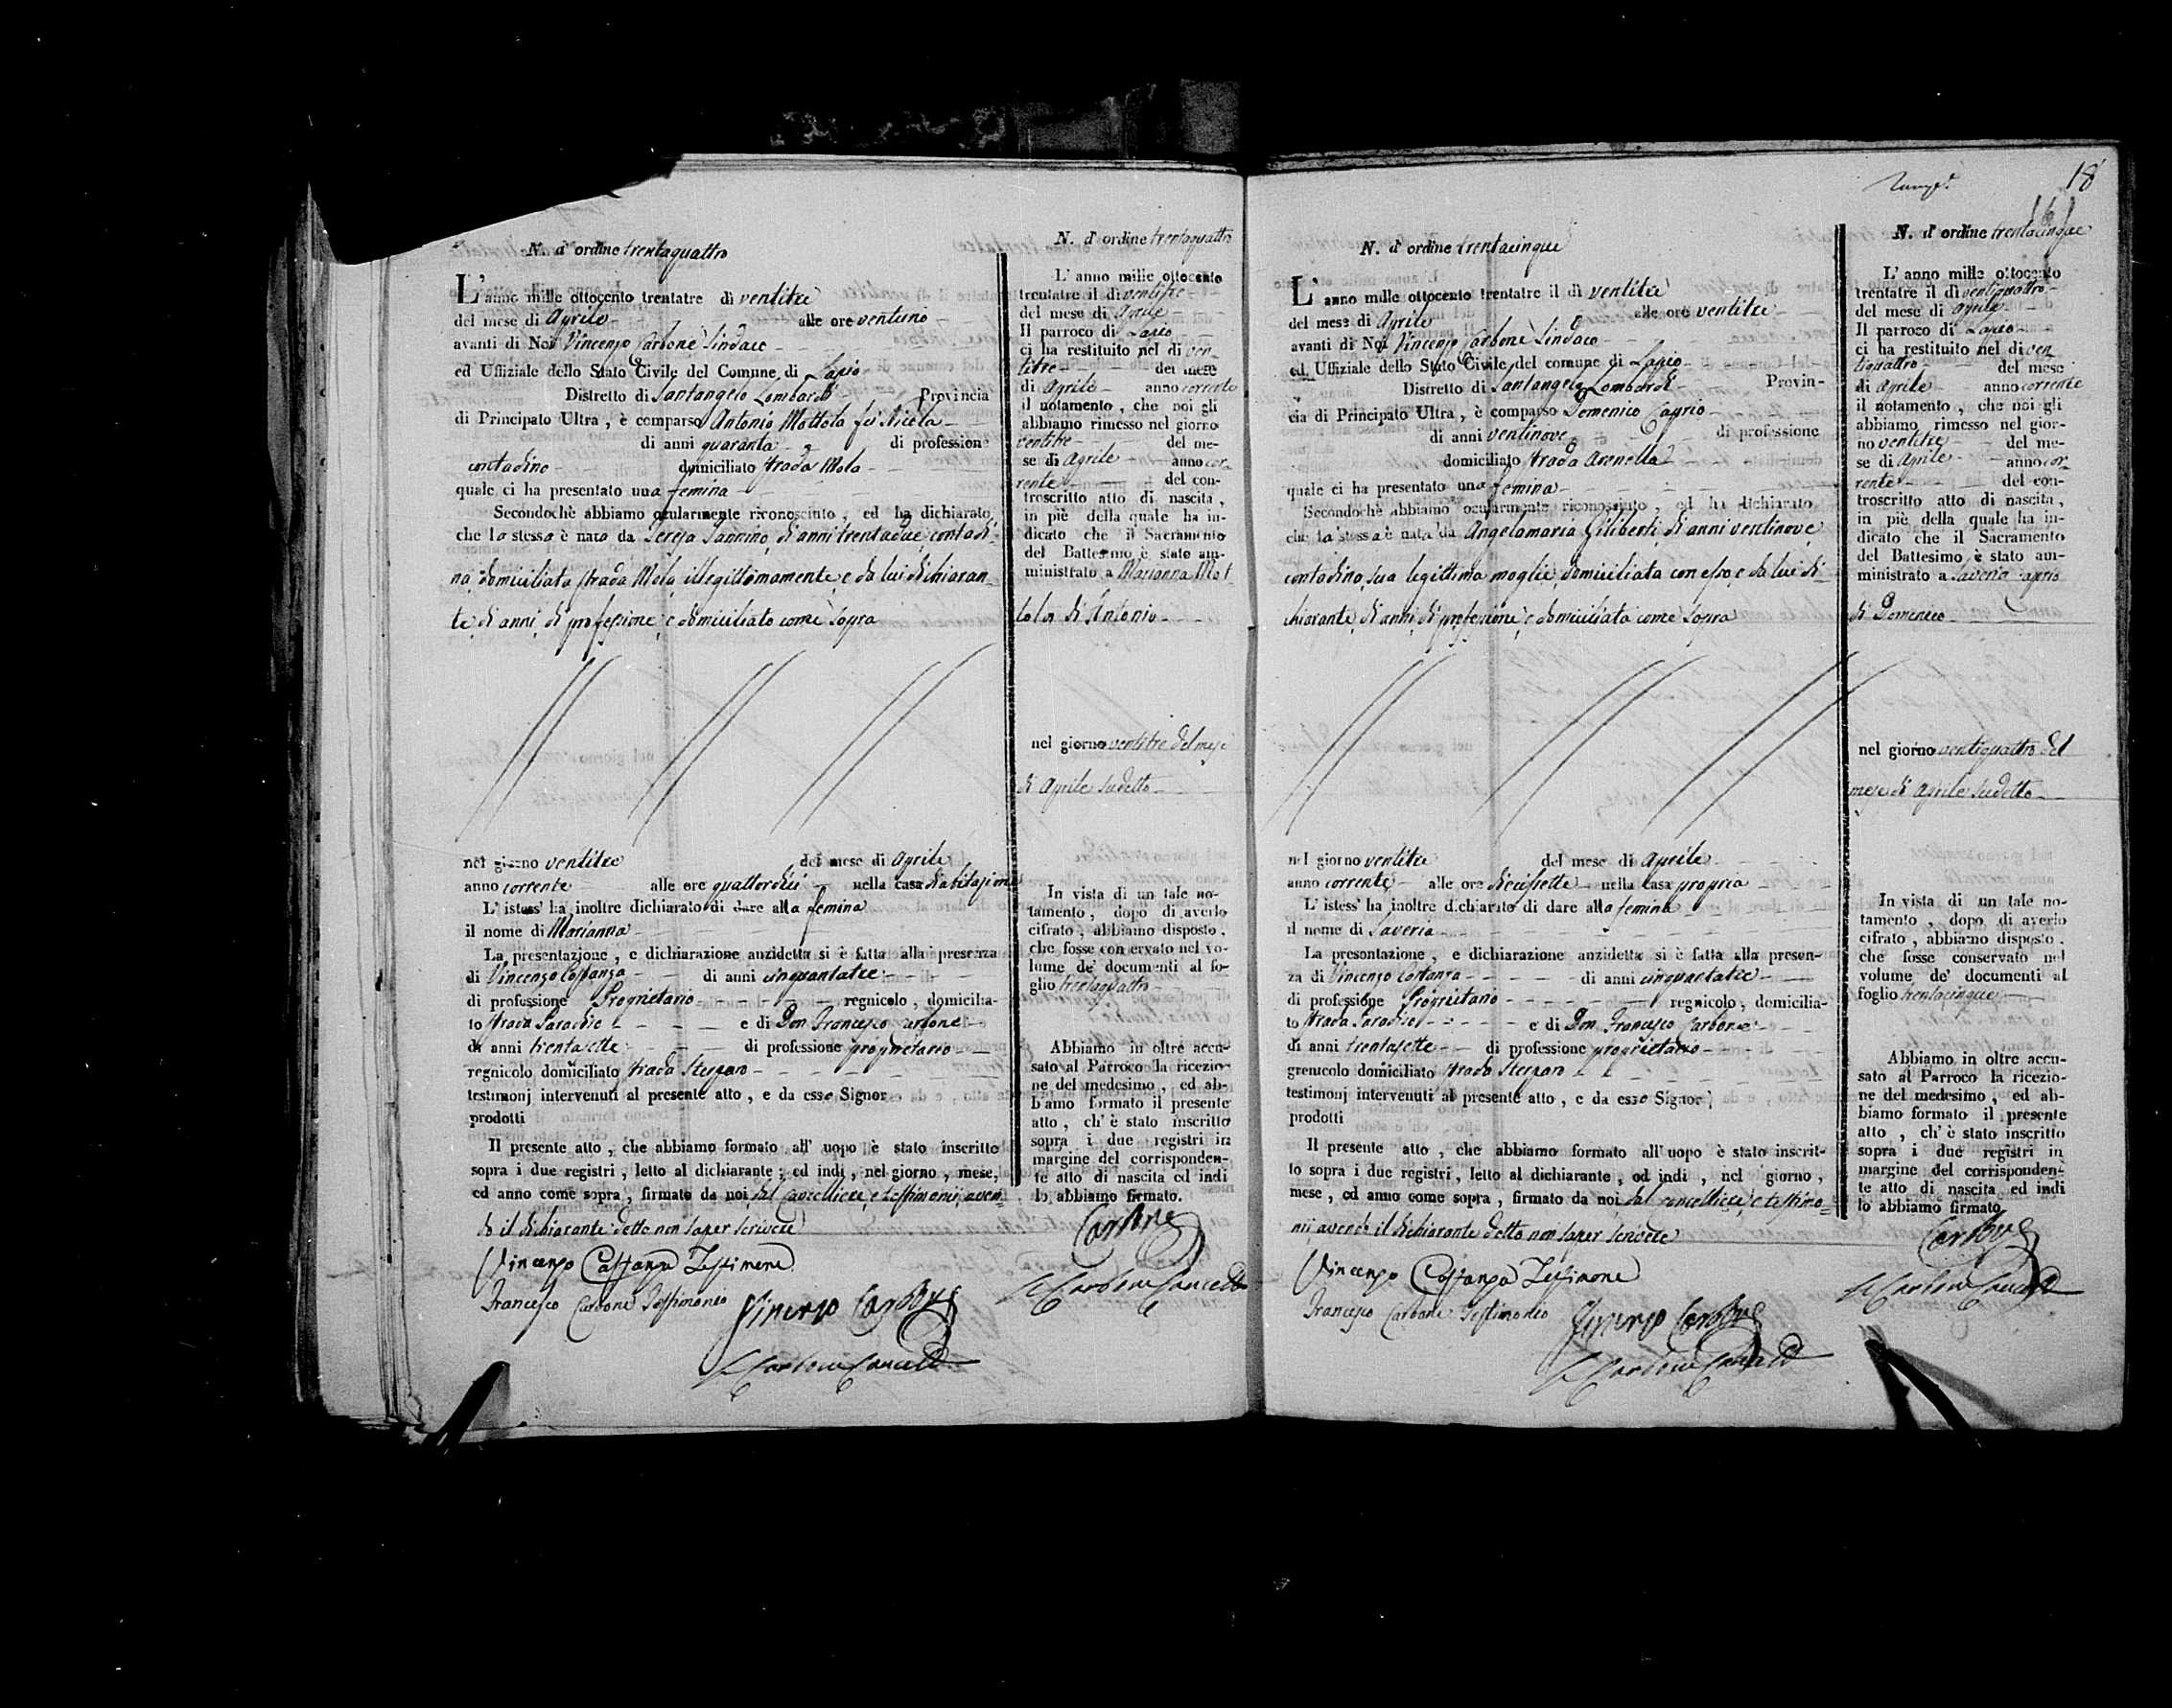 N. d' ordine trentaquattro
L' anno mille ottocento trentatre dì ventitre
del mese di Aprile alle ore ventuno
avanti di Noi Vincenzo Carbone Sindaco
ed Uffiziale dello Stato Civile del Comune di Lapio
Distretto di Santangelo Lombardi Provincia
di Principato Ultra, è comparso Antonio Mottola fù Nicola
di anni quaranta di professione
contadino domiciliato strada Mola
quale ci ha presentato una femina
Secondochè abbiamo ocularmente riconosciuto, ed ha dichiarato
che la stessa è nata da Teresa Iannino, di anni trentadue, contadi-
na, domiciliata strada Mola, illegittimamente, e da lui dichiaran-
te, di anni, di professione, e domiciliato come sopra
nel giorno ventitre del mese di Aprile
anno corrente alle ore quattordici nella casa d'abitazione
L' istess' ha inoltre dichiarato di dare alla femina
il nome di Marianna
La presentazione, e dichiarazione anzidetta si è fatta alla presenza
di Vincenzo Costanza di anni cinquantatre
di professione Proprietario regnicolo, domicilia-
to strada Paradiso e di Don Francesco Carbone
di anni trentasette di professione proprietario
regnicolo domiciliato strada
testimonj intervenuti al presente atto, e da esso Signor
prodotti
Il presente atto, che abbiamo formato all' uopo è stato inscritto
sopra i due registri, letto al dichiarante; ed indi, nel giorno, mese,
ed anno come sopra, firmato da noi, dal cancelliere, e testimonii, aven-
do il dichiarante detto non saper scrivere
Vincenzo Costanza Testimone
Francesco Carbone Testimonio
Vincenzo Carbone
Carbone Cancell
N. d' ordine trentaquattro
L' anno mille ottocento
trentatre il dì ventitre
del mese di Aprile
Il parroco di Lapio
ci ha restituito nel dì ven-
titre del mese
di Aprile anno corrente
il notamento, che noi gli
abbiamo rimesso nel giorno
ventitre del me-
se di Aprile anno cor-
rente del con-
troscritto atto di nascita,
in piè della quale ha in-
dicato che il Sacramento
del Battesimo è stato am-
ministrato a Marianna Mot-
tola di Antonio
nel giorno ventitre del mese
di Aprile sudetto
In vista di un tale no-
tamento, dopo di averlo
cifrato, abbiamo disposto,
che fosse conservato nel vo-
lume de' documenti al fo-
glio trentaquattro
Abbiamo in oltre accu-
sato al Parroco la ricezio-
ne del medesimo, ed ab-
biamo formato il presente
atto, ch' è stato inscritto
sopra i due registri in
margine del corrisponden-
te atto di nascita ed indi
lo abbiamo firmato.
Carbone
Carbone Cancell
18
N. d' ordine trentacinque
L' anno mille ottocento trentatre il dì ventitre
del mese di Aprile alle ore ventitre
avanti di Noi Vincenzo Carbone Sindaco
ed Uffiziale dello Stato Civile del comune di Lapio
Distretto di Santangelo Lombardi Provin-
cia di Principato Ultra, è comparso Domenico Caprio
di anni ventinove di professione
domiciliato strada Arenella
quale ci ha presentato una femina
Secondochè abbiamo ocularmente riconosciuto, ed ha dichiarato
che la stessa è nata da Angelamaria Giliberti, di anni ventinove,
contadina, sua legittima moglie, domiciliata con esso, e da lui di-
chiarante, di anni, di professione, e domiciliato come sopra
nel giorno ventitre del mese di Aprile
anno corrente alle ore diecissette nella casa propria
L' istess' ha inoltre dichiarato di dare alla femina
il nome di Saveria
La presentazione, e dichiarazione anzidetta si è fatta alla presen-
za di Vincenzo Costanza di anni cinquantatre
di professione Proprietario regnicolo, domicilia-
to strada Paradiso e di Don Francesco Carbone
di anni trentasette di professione proprietario
gremcolo domiciliato strada
testimonj intervenuti al presente atto, e da esso Signor
prodotti
Il presente atto, che abbiamo formato all' uopo è stato inscrit-
to sopra i due registri, letto al dichiarante, ed indi, nel giorno,
mese, ed anno come sopra, firmato da noi dal cancelliere, e testimo-
nii avendo il dichiarante detto non saper scrivere
Vincenzo Costanza Testimone
Francesco Carbone Testimonio
Vincenzo Carbone
Carbone Cancell
N. d' ordine trentacinque
L' anno mille ottocento
trentatre il dì ventiquattro
del mese di Aprile
Il parroco di Lapio
ci ha restituito nel dì ven-
tiquattro del mese
di Aprile anno corrente
il notamento, che noi gli
abbiamo rimesso nel gior-
no ventitre del me-
se di Aprile anno cor-
rente del con-
troscritto atto di nascita,
in piè della quale ha in-
dicato che il Sacramento
del Battesimo è stato am-
ministrato a Saveria Caprio
di Domenico
nel giorno ventiquattro del
mese di Aprile sudetto
In vista di un tale no-
tamento, dopo di averlo
cifrato, abbiamo disposto,
che fosse conservato nel
volume de' documenti al
foglio trentacinque
Abbiamo in oltre accu-
sato al Parroco la ricezio-
ne del medesimo, ed ab-
biamo formato il presente
atto, ch' è stato inscritto
sopra i due registri in
margine del corrisponden-
te atto di nascita ed indi
lo abbiamo firmato
Carbone
Carbone Cancell